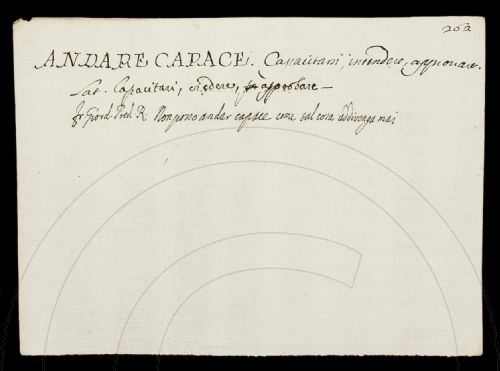 262
ANDARE CAPACE. Capacitarsi, intendere, approvare.
Lat. Capacitari, credere, approbare —
Fr. Giord. Pred. R. Non posso andar capace come tal cosa addivenga mai